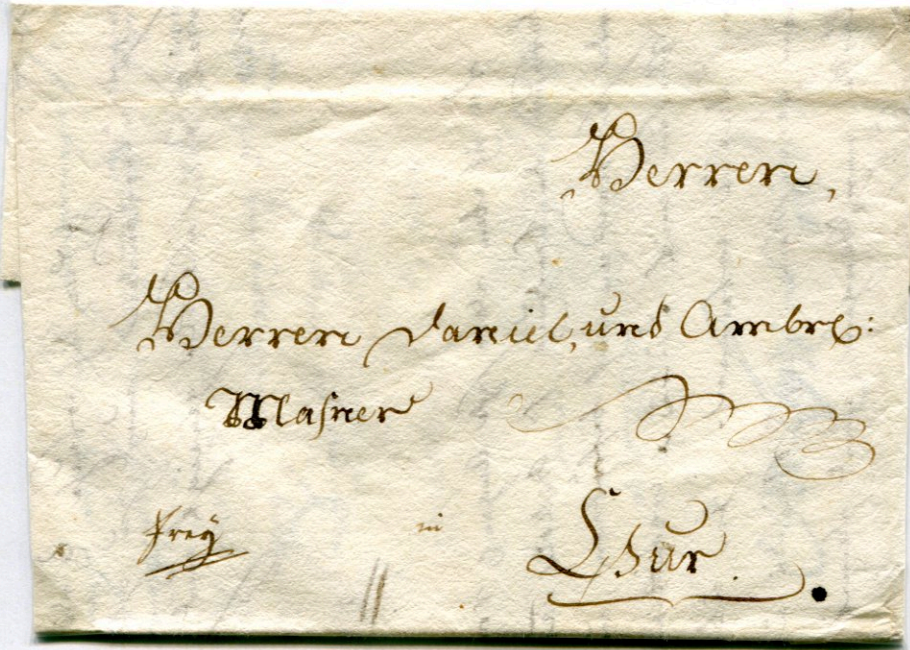 Herren,
Herren Daniel, und Ambrs:
Masner
frey in Chur.